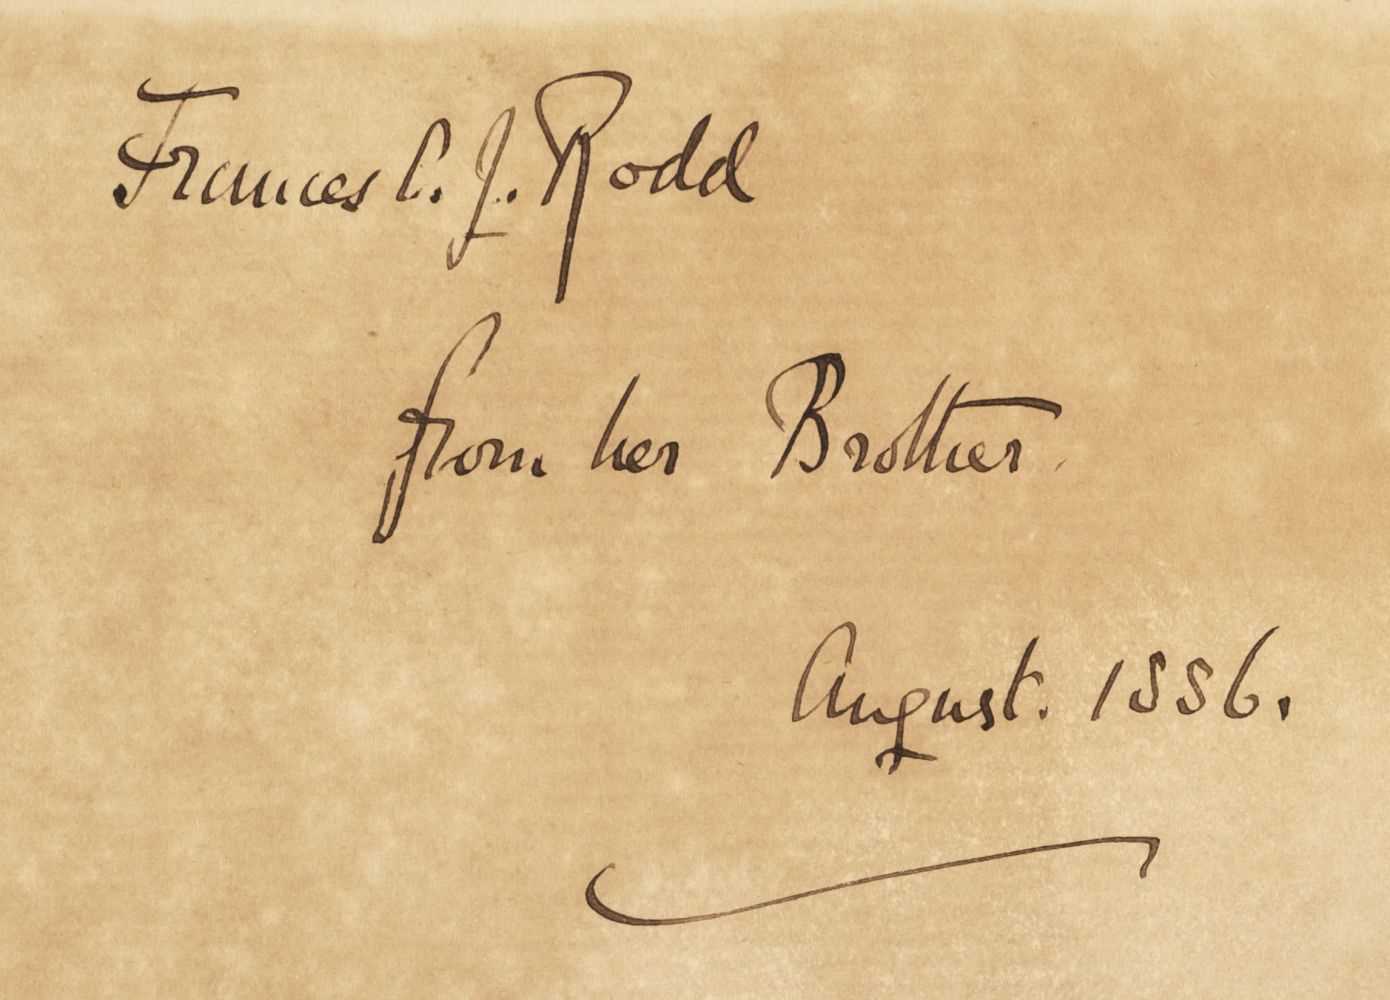 Frances C. J. Rodd
from her Brother.
August. 1886.